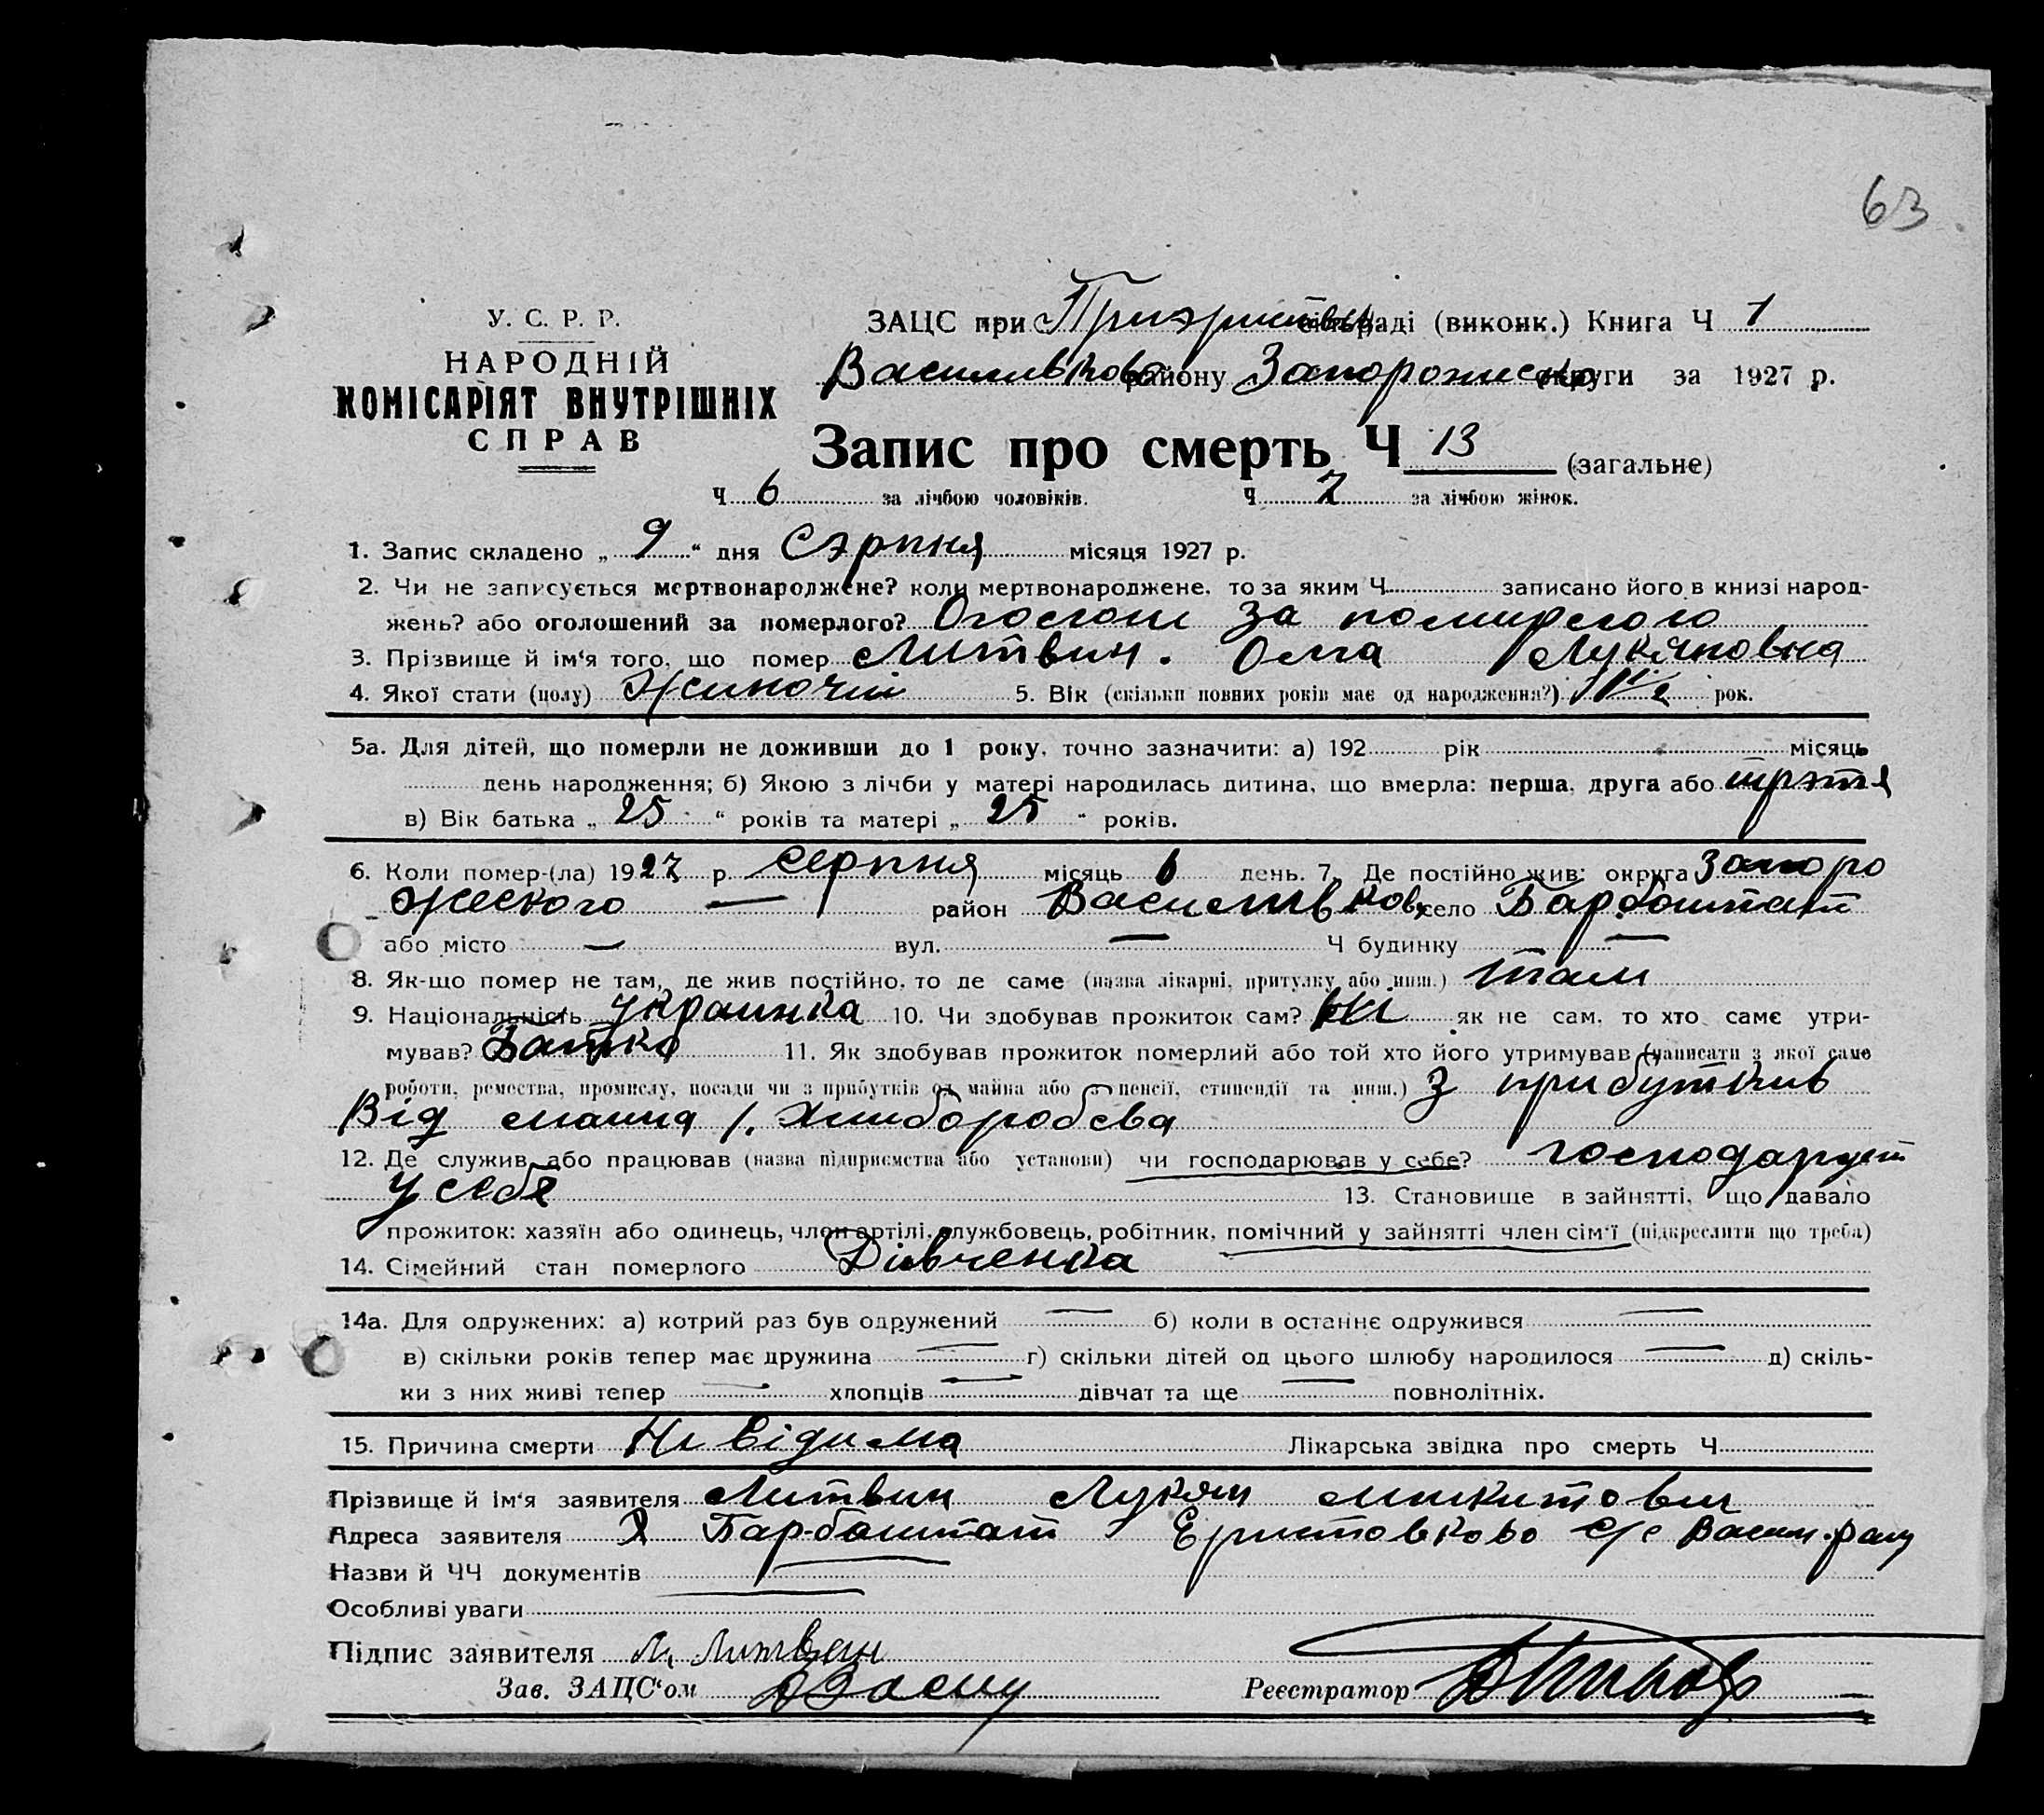 63
У. С. Р. Р.
НАРОДНІЙ
КОМІСАРІЯТ ВНУТРІШНІХ
СПРАВ
ЗАЦС при сільраді (виконк.) Книга Ч 1
району округи за 1927 р.
Запис про смерть Ч 13 (загальне)
Ч 6 за лічбою чоловіків. Ч 7 за лічбою жінок.
1. Запис складено „ 9 “ дня Сэрпня місяця 1927 р.
2. Чи не записується мертвонароджене? коли мертвонароджене, то за яким Ч записано його в книзі народ-
жень? або оголошений за померлого? за
3. Прізвище й ім‘я того, що помер Литвин. Ольга Лукяновна
4. Якої стати (полу) Жиночій 5. Вік (скільки повних років має од народження?) 1 1/2 рок.
5а. Для дітей, що померли не доживши до 1 року, точно зазначити: а) 192 рік місяць
день народження; б) Якою з лічби у матері народилась дитина, що вмерла: перша, друга або трэтя
в) Вік батька „ 25 “ років та матері „ 25 “ років.
6. Коли помер-(ла) 1927 р. серпня місяць 6 день. 7. Де постійно жив: округа Запоро
жського — район село Барбоштат
або місто — вул. — Ч будинку —
8. Як-що помер не там, де жив постійно, то де саме (назва лікарні, притулку або инш.) там
9. Національність украинка 10. Чи здобував прожиток сам? ні як не сам, то хто саме утри-
мував? Батько 11. Як здобував прожиток померлий або той хто його утримував (написати з якої саме
роботи, ремества, промислу, посади чи з прибутків од майна або з пенсії, стипендії та инш.) З прибутків
Від маина /. Хлиборобсва
12. Де служив або працював (назва підприємства або установи) чи господарював у себе? господарует
у себе 13. Становище в зайнятті, що давало
прожиток: хазяїн або одинець, член артілі, службовець, робітник, помічний у зайнятті член сім‘ї (підкреслити що треба)
14. Сімейний стан померлого Дівченка
14а. Для одружених: а) котрий раз був одружений — б) коли в останнє одружився —
в) скільки років тепер має дружина — г) скільки дітей од цього шлюбу народилося — д) скіль-
ки з них живі тепер — хлопців — дівчат та ще — повнолітніх.
15. Причина смерти Не відима Лікарська звідка про смерть Ч
Прізвище й ім‘я заявителя Литвин Лукян Микитович
Адреса заявителя Х Барбоштат Еристовково с/с Васил. рану
Назви й ЧЧ документів —
Особливі уваги —
Підпис заявителя Л. Литвин
Зав. ЗАЦС‘ом
Реєстратор